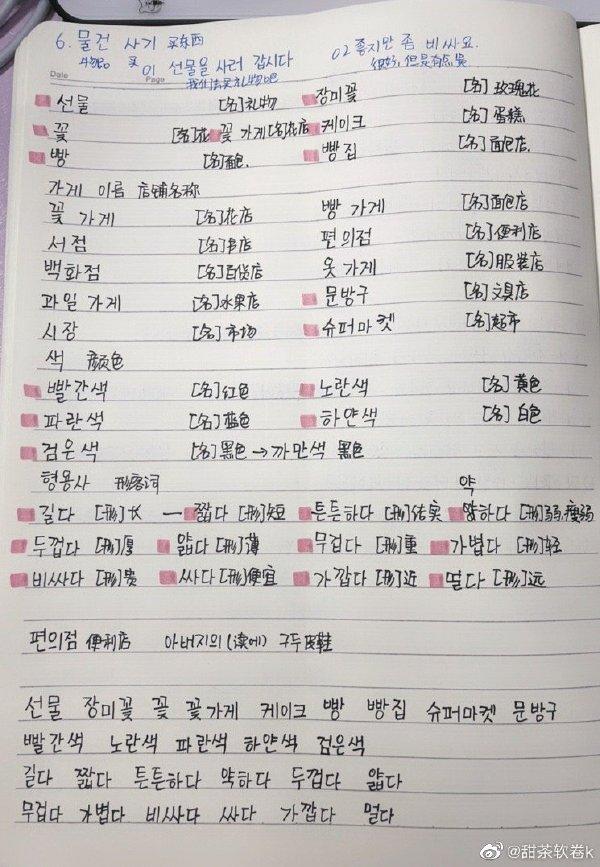 6. 물건 사기 买东西
物品 买
01 선물을 사러 갑시다
我们去买礼物吧
02 좋지만 좀 비싸요.
很好,但是有点贵
Date Page
선물 [名]礼物 장미꽃 [名]玫瑰花
꽃 [名]花 꽃 가게 [名]花店 케이크 [名]蛋糕
빵 [名]面包 빵집 [名]面包店
가게 이름 店铺名称
꽃 가게 [名]花店 빵 가게 [名]面包店
서점 [名]书店 편의점 [名]便利店
백화점 [名]百货店 옷 가게 [名]服装店
과일 가게 [名]水果店 문방구 [名]文具店
시장 [名]市场 슈퍼마켓 [名]超市
색 颜色
빨간색 [名]红色 노란색 [名]黄色
파란색 [名]蓝色 하얀색 [名]白色
검은색 [名]黑色→까만색 黑色
형용사 形容词
약
길다 [形]长 — 짧다 [形]短 튼튼하다 [形]结实 약하다 [形]弱,瘦弱
두껍다 [形]厚 얇다 [形]薄 무겁다 [形]重 가볍다 [形]轻
비싸다 [形]贵 싸다 [形]便宜 가깝다 [形]近 멀다 [形]远
편의점 便利店 아버지의(读에) 구두 皮鞋
선물 장미꽃 꽃 꽃가게 케이크 빵 빵집 슈퍼마켓 문방구
빨간색 노란색 파란색 하얀색 검은색
길다 짧다 튼튼하다 약하다 두껍다 얇다
무겁다 가볍다 비싸다 싸다 가깝다 멀다
@甜茶软卷k